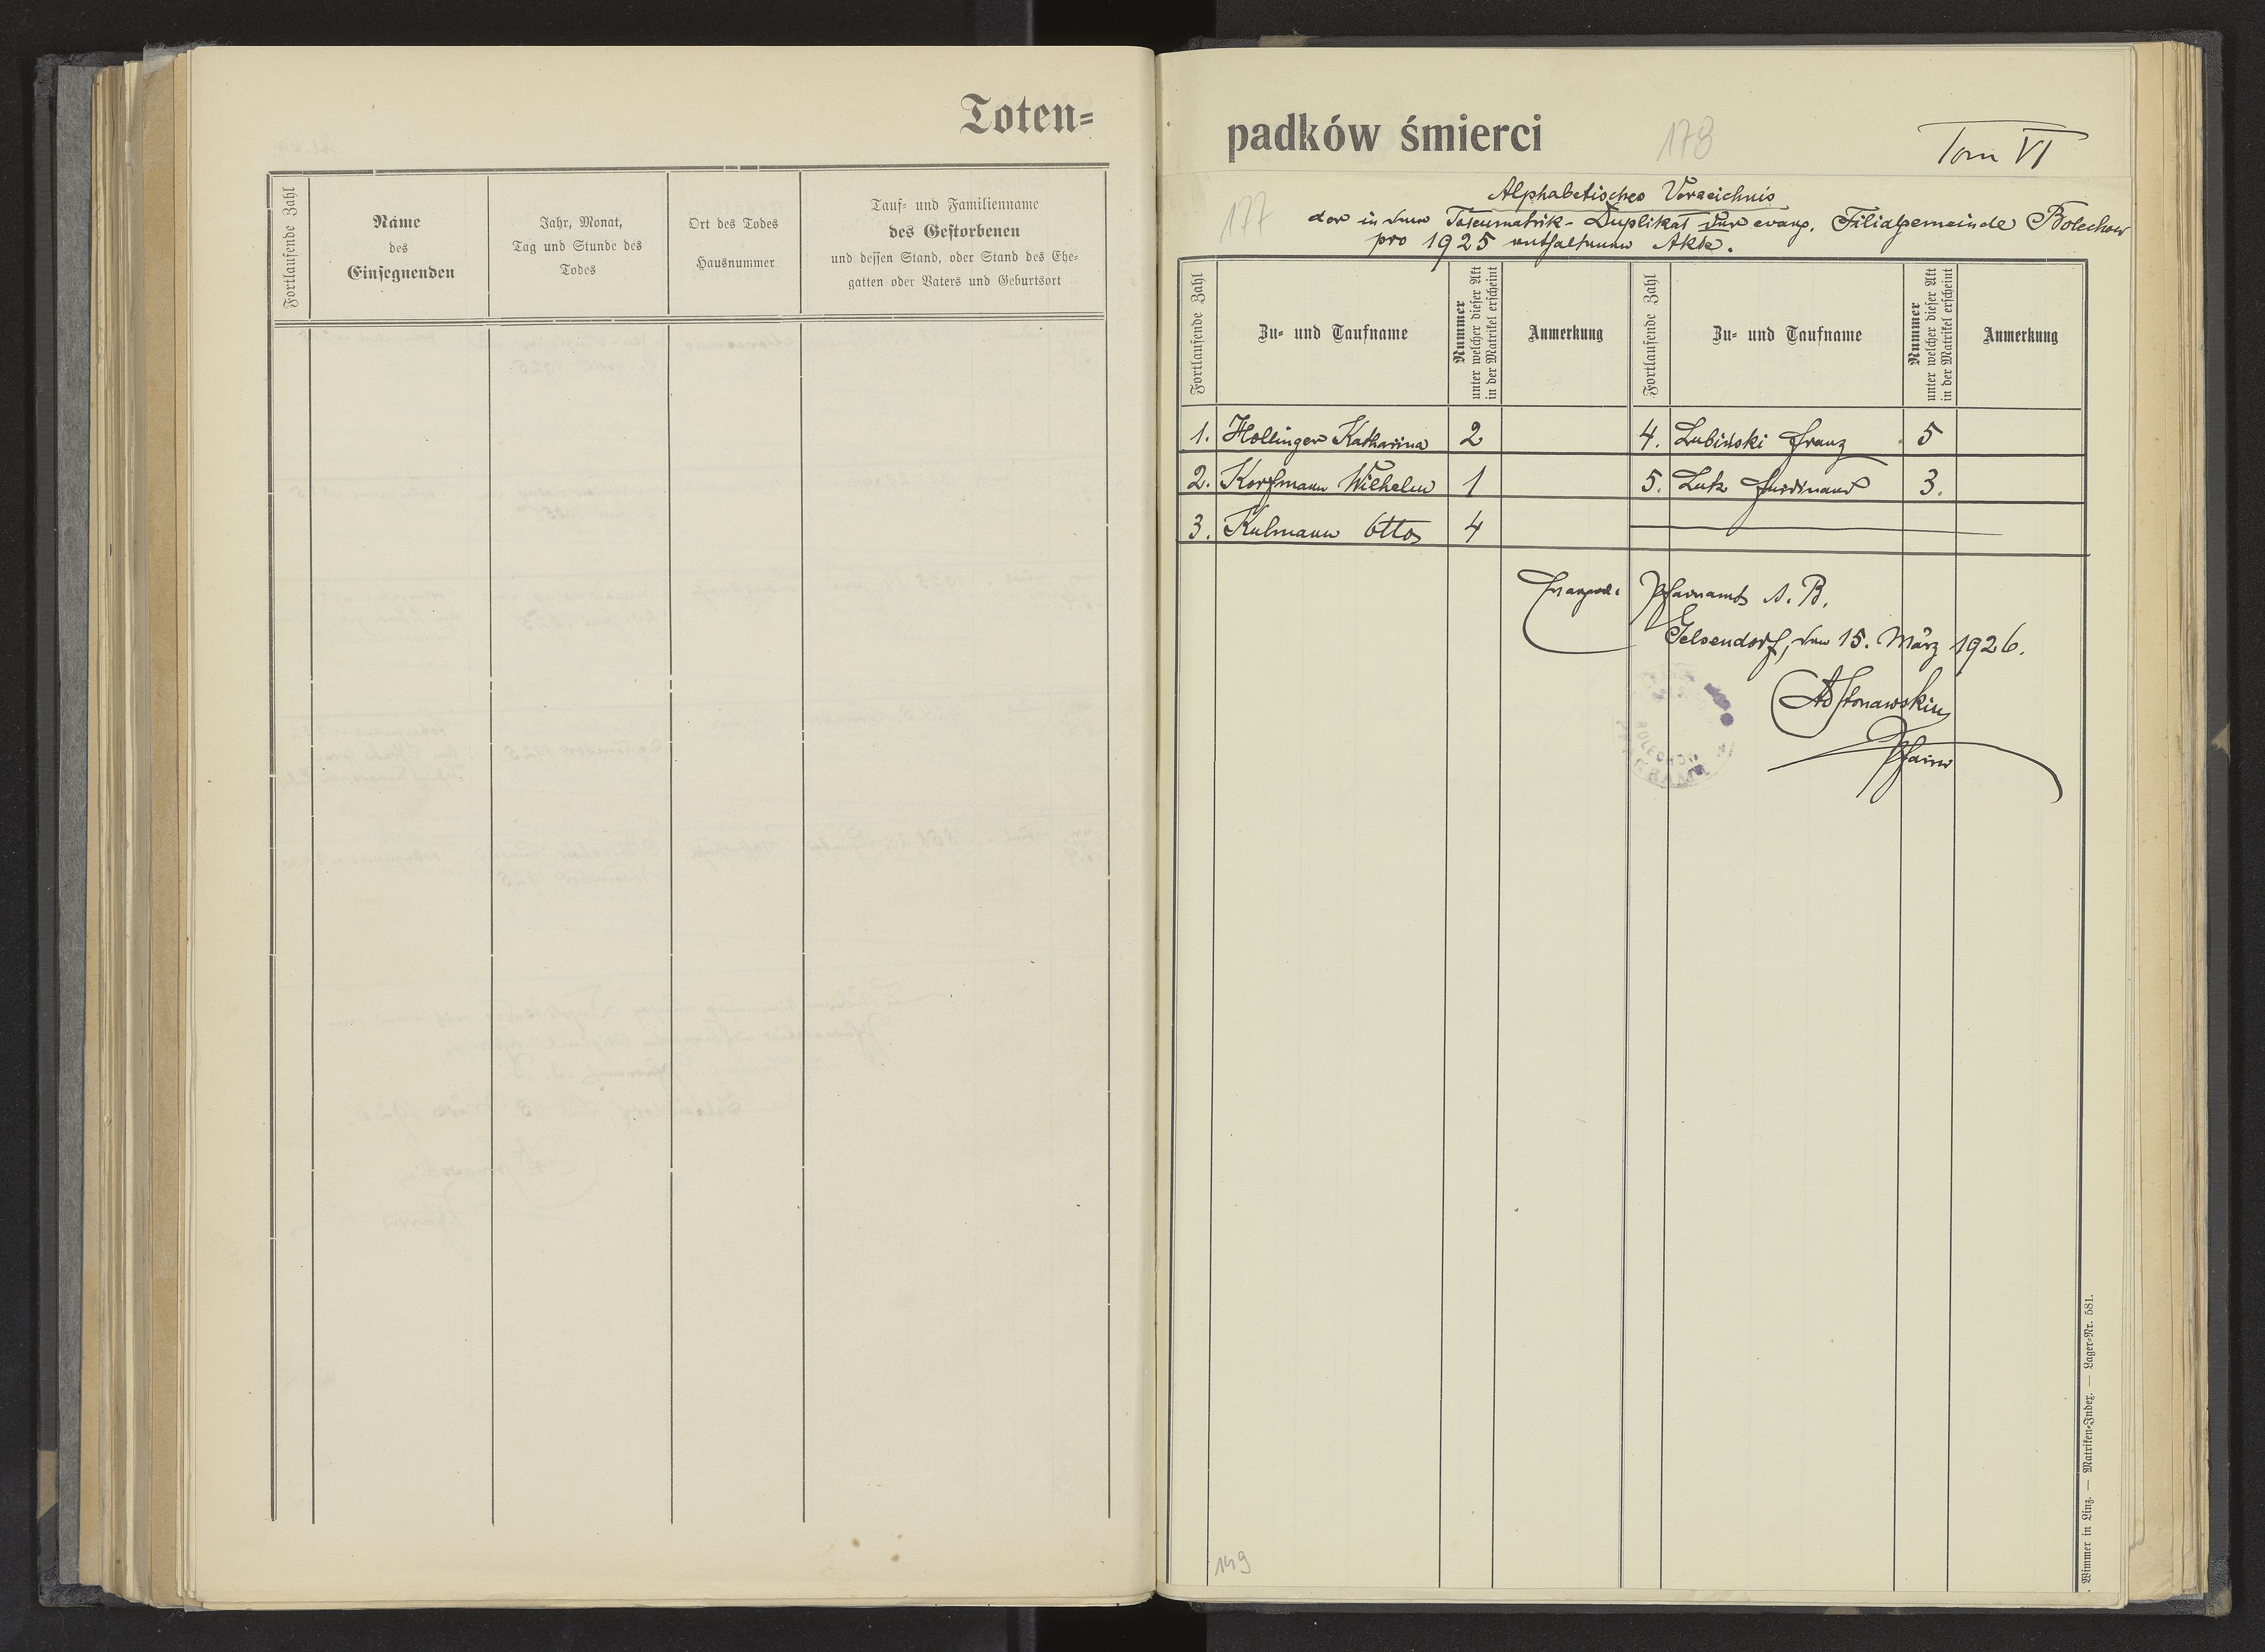 Toten=
Fortlaufende Zahl
Name
des
Einsegnenden
Jahr, Monat,
Tag und Stunde des
Todes
Ort des Todes
Hausnummer
Tauf= und Familienname
des Gestorbenen
und dessen Stand, oder Stand des Ehe=
gatten oder Vaters und Geburtsort
padków śmierci
178
Tom VI
177
Alphabetisches Verzeichnis
der in dem Totenmatrik-Duplikat der evang. Filialgemeinde Bolechow
pro 1925 enthaltenen Akte.
Fortlaufende Zahl
Zu= und Taufname
Nummer
unter welcher dieser Akt
in der Matrikel erscheint
Anmerkung
Fortlaufende Zahl
Zu= und Taufname
Nummer
unter welcher dieser Akt
in der Matrikel erscheint
Anmerkung
1. Hollinger Katharina 2
4. Lubiński Franz 5
2. Korfmann Wilhelm 1
5. Lutz Ferdinand 3.
3. Kulmann Otto 4
Evangel. Pfarramt A. B.
Gelsendorf, den 15. März 1926.
BOLECHÓW
Pfarrer
149
. Wimmer in Linz. — Matriken=Index. — Lager=Nr. 581.